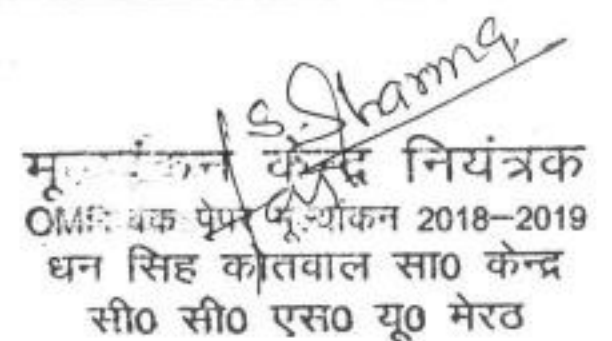 S. Sharma
मूल्यांकन केन्द्र नियंत्रक
OMR बैक पेपर मूल्यांकन 2018–2019
धन सिंह कोतवाल सा0 केन्द्र
सी0 सी0 एस0 यू0 मेरठ